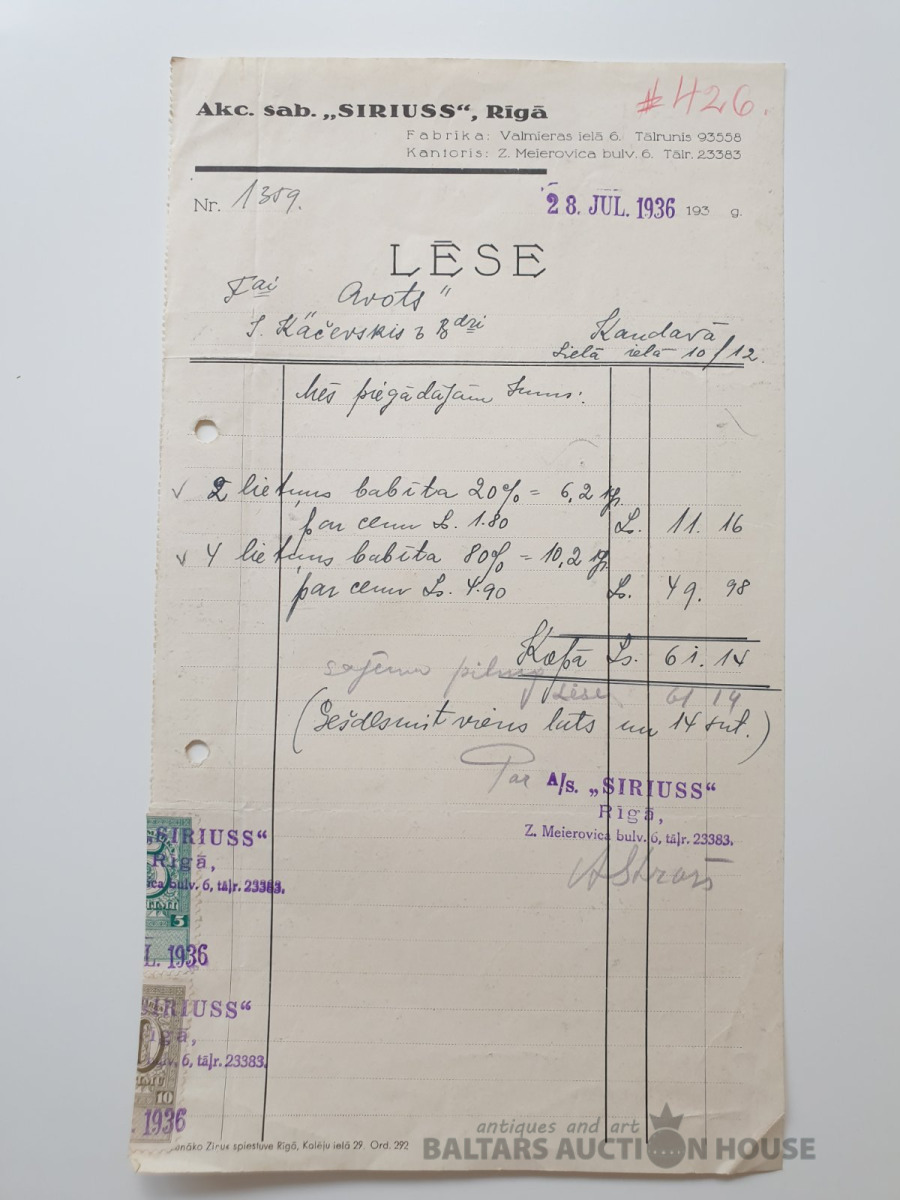 Akc. sab. „SIRIUSS“, Rīgā
#426.
Fabrika: Valmieras ielā 6. Tālrunis 93558
Kantoris: Z. Meierovica bulv. 6. Tālr. 23383
Nr. 1359.
28. JUL. 1936 193 g.
LĒSE
Avots"
Kāčevskis
Kandavā
Lielā ielā 10/12.
Mēs piegādājām Jums:
2 lietuņs babīta 20% = 6,2 kg.
par cenu Ls. 1.80 Ls. 11. 16
4 lietuņs babīta 80% = 10,2 kg.
par cenu Ls. 4.90 Ls. 49. 98
Kopā Ls. 61. 14
saņēmu pilnu
Lēse 61 14
(Sešdesmit viens lats un 14 snt.)
Par A/s. „SIRIUSS“
Rīgā,
Z. Meierovica bulv. 6, tāļr. 23383.
„SIRIUSS“
Rīgā,
bulv. 6, tāļr. 23383.
5
L. 1936
SIRIUSS“
īgā,
bulv. 6, tāļr. 23383.
10
1936
Ziņus spiestuve Rīgā, Kalēju ielā 29. Ord. 292
antiques and art
BALTARS AUCTION HOUSE